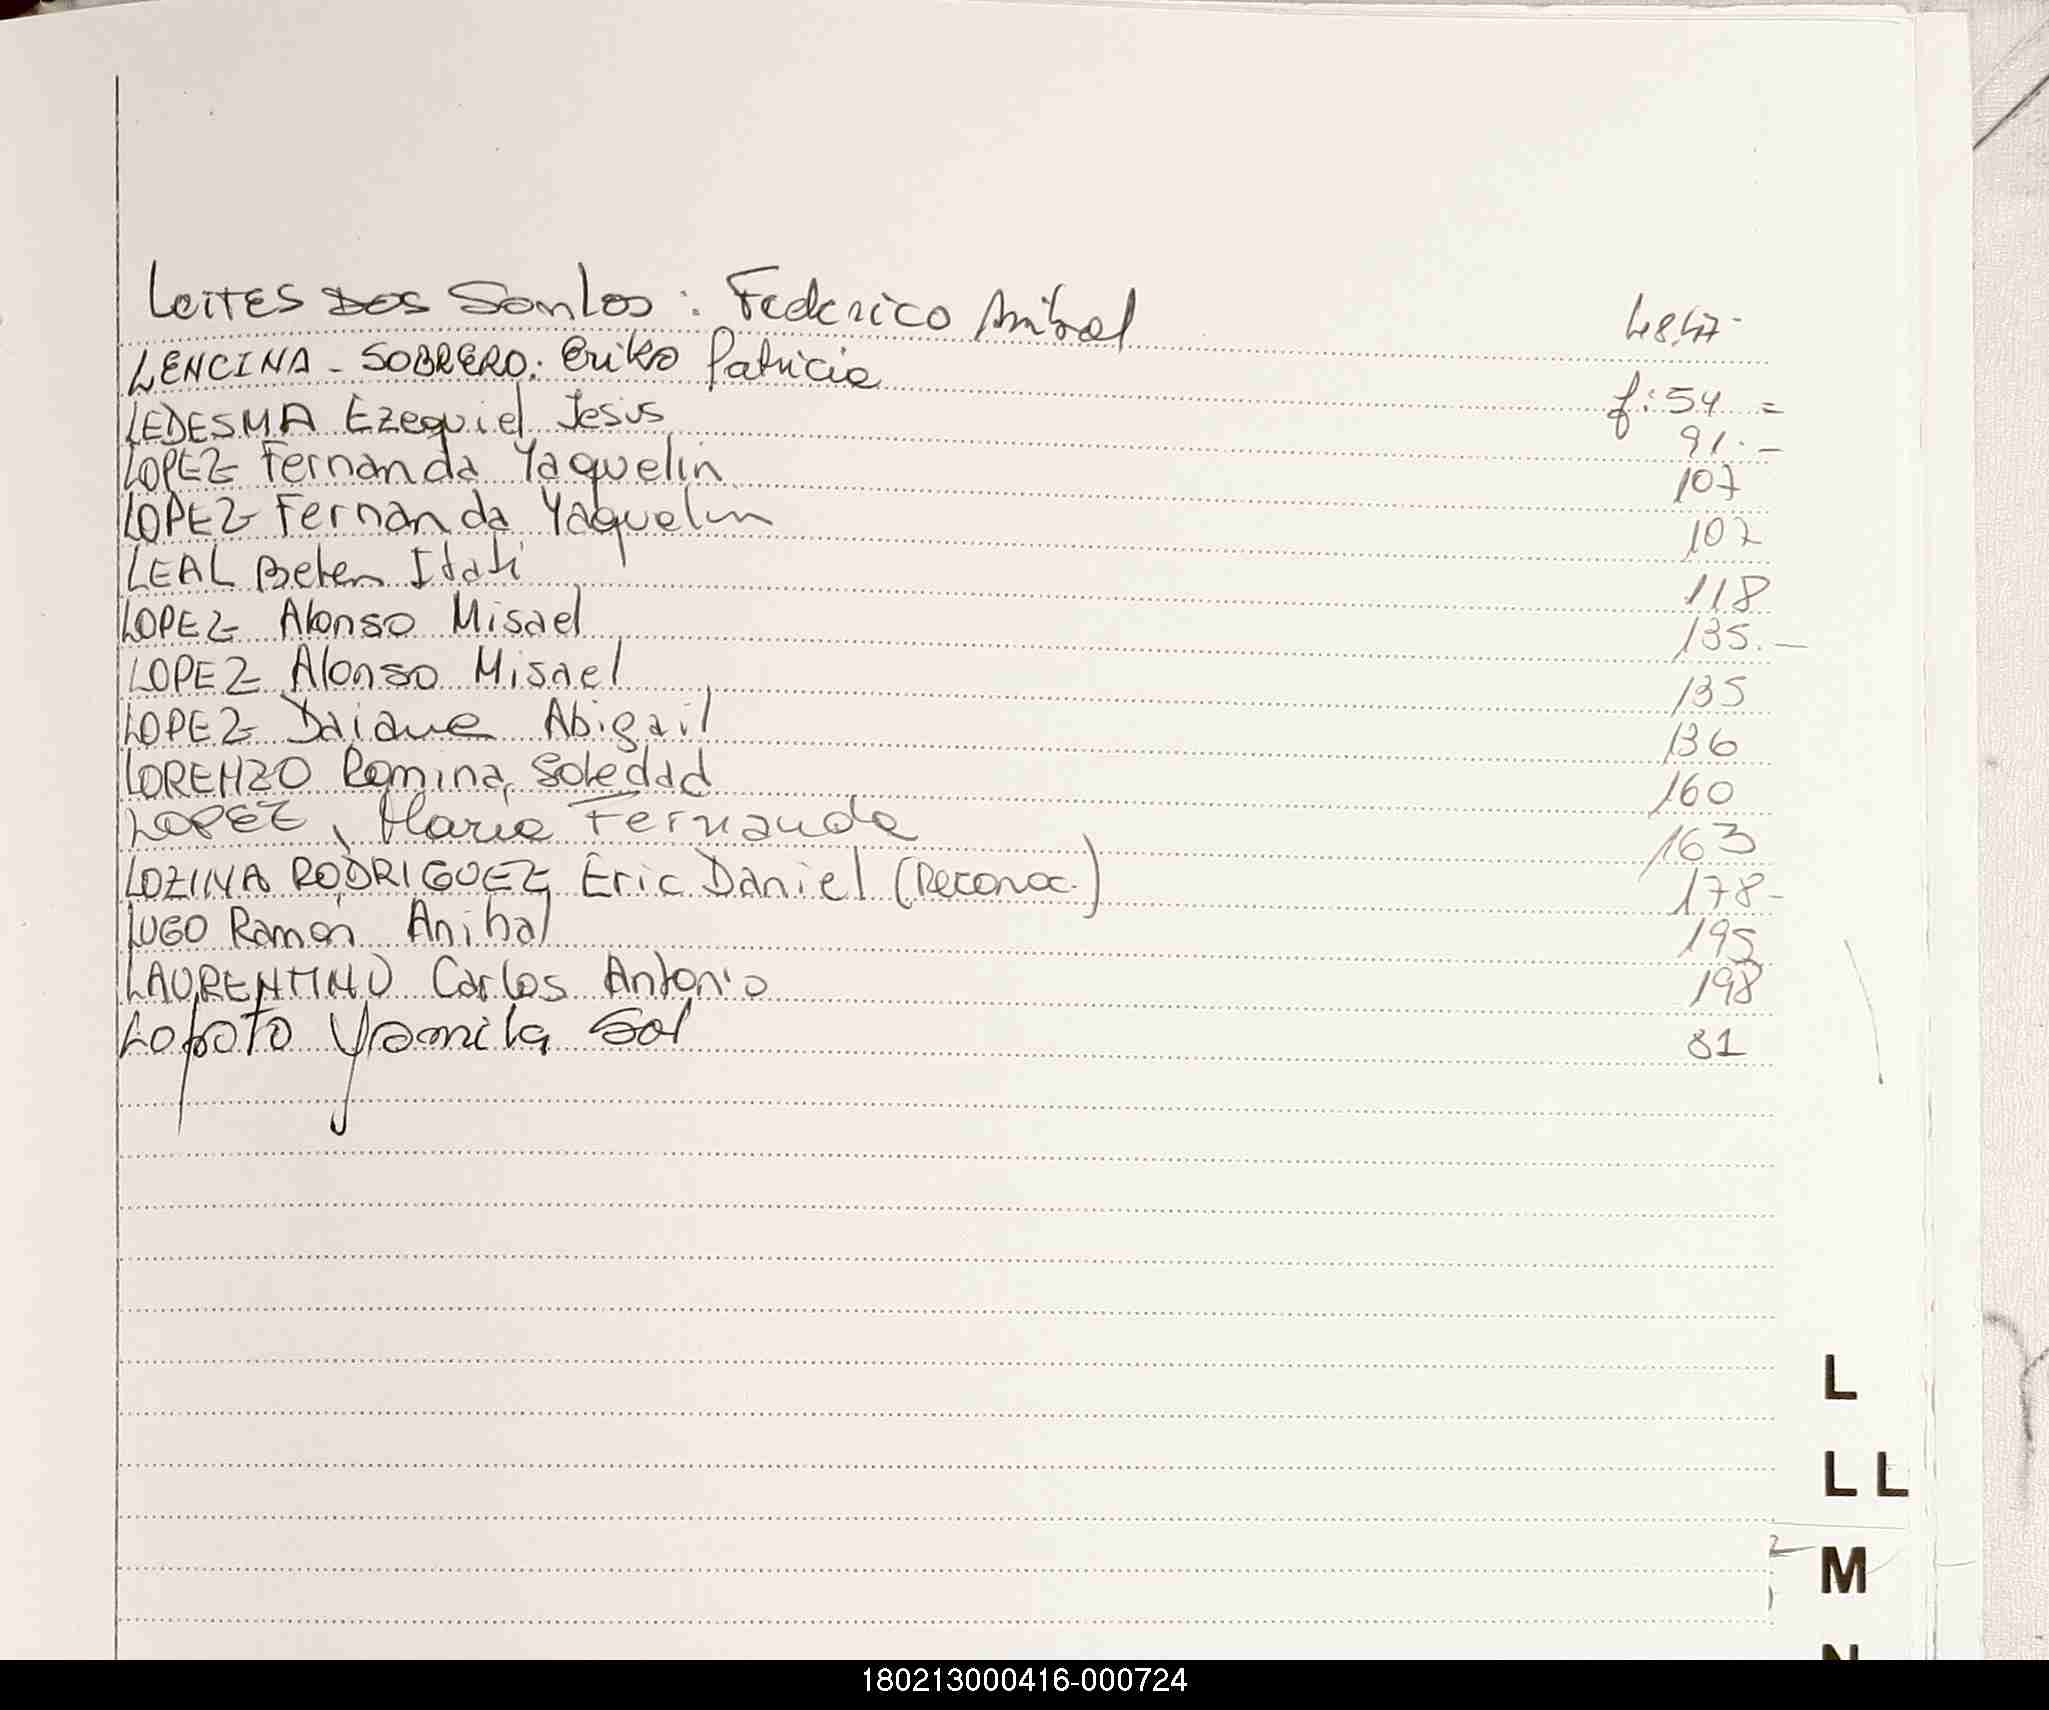 Leites Dos Santos: Federico Anibal 48.47-
LENCINA - SOBRERO: Erika Patricia f: 54 =
LEDESMA Ezequiel Jesus 91.-
LOPEZ Fernanda Yaquelin 107
LOPEZ Fernanda Yaquelin 107
LEAL Belen Itati 118
LOPEZ Alonso Misael 135.-
LOPEZ Alonso Misael 135
LOPEZ Daiane Abigail 136
LORENZO Romina Soledad 160
LOPEZ, Maria Fernanda 163
LOZINA RODRIGUEZ Eric Daniel (Reconoc.) 178-
LUGO Ramón Anibal 195
LAURENTINO Carlos Antonio 198
Yamila Sol 81
L
LL
M
N
180213000416-000724